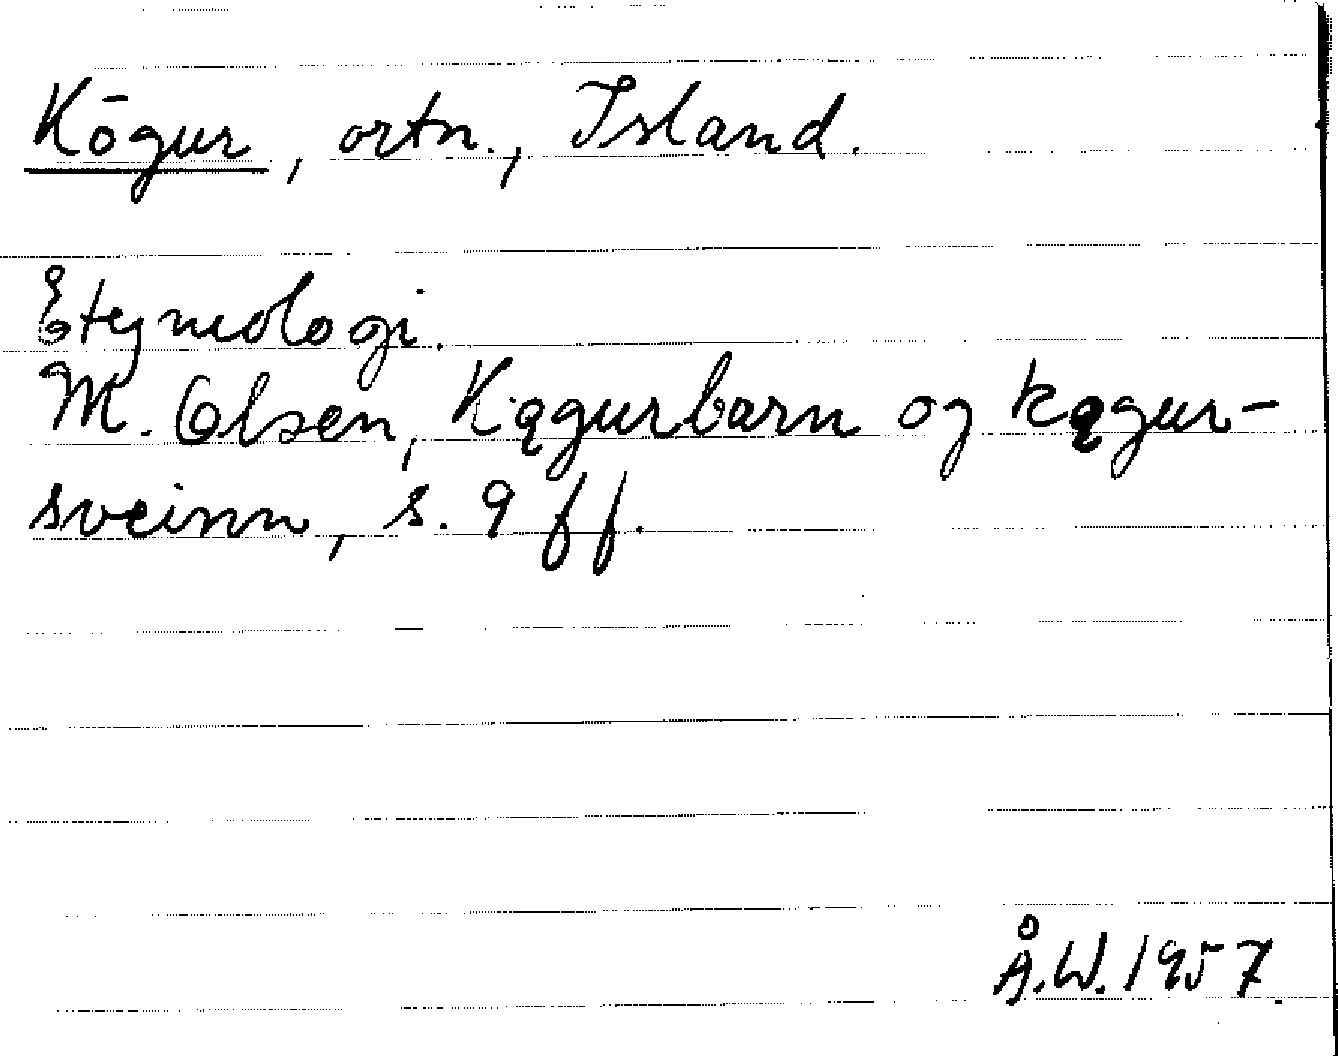 Kögur, ortn., Island.
Etymologi.
M. Olsen, Kǫgurbarn og kǫgur-
sveinn, s. 9 ff.
Å.W. 1957.